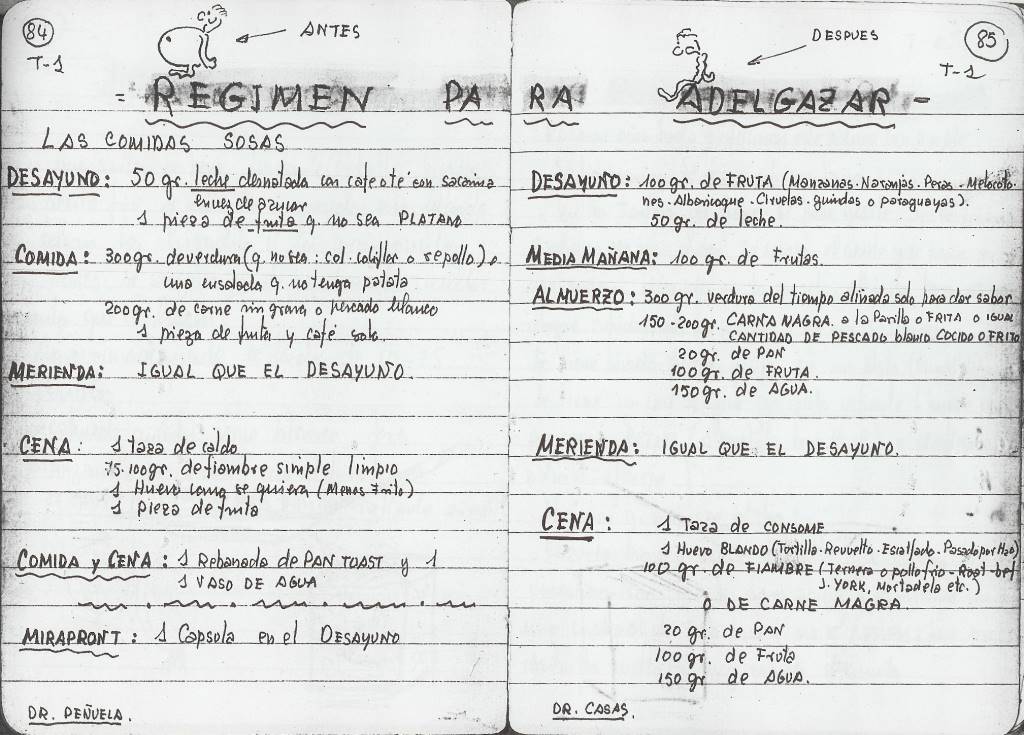 84
T-1
ANTES
= REGIMEN PA
LAS COMIDAS SOSAS
DESAYUNO: 50 gr. leche desnatada con cafe o té con sacarina
en vez de azucar
1 pieza de fruta q. no sea PLATANO
COMIDA: 300 gr. de verdura (q. no sea: col. coliflor o repollo) o
una ensalada q. no tenga patata
200 gr. de carne sin grasa o pescado blanco
1 pieza de fruta y café solo.
MERIENDA: IGUAL QUE EL DESAYUNO.
CENA: 1 taza de caldo
75-100 gr. de fiambre simple limpio
1 Huevo como se quiera (Menos Frito)
1 Pieza de fruta
COMIDA y CENA: 1 Rebanada de PAN TOAST y 1
1 VASO DE AGUA
MIRAPRONT: 1 Capsula en el DESAYUNO
DR. PEÑUELA.
85
T-1
DESPUES
RA ADELGAZAR -
DESAYUNO: 100 gr. de FRUTA (Manzanas. Naranjas. Peras - Melocoto-
nes. Albaricoque. Ciruelas. guindas o paraguayas).
50 gr. de leche.
MEDIA MAÑANA: 100 gr. de Frutas.
ALMUERZO: 300 gr. verdura del tiempo aliñada solo para dar sabor
150-200 gr. CARNA MAGRA. a la Parilla o FRITA o IGUAL
CANTIDAD DE PESCADO blanco COCIDO O FRITO
20 gr. de PAN
100 gr. de FRUTA.
150 gr. de AGUA.
MERIENDA: IGUAL QUE EL DESAYUNO.
CENA: 1 Taza de CONSOME
1 HUEVO BLANDO (Tortilla. Revuelto. Escalfado. Pasado por H2O)
100 gr. de FIAMBRE (Ternera o pollo frio - Rost-bef
J. YORK, Mortadela etc.)
O DE CARNE MAGRA.
20 gr. de PAN
100 gr. de Fruta
150 gr de AGUA.
DR. CASAS.